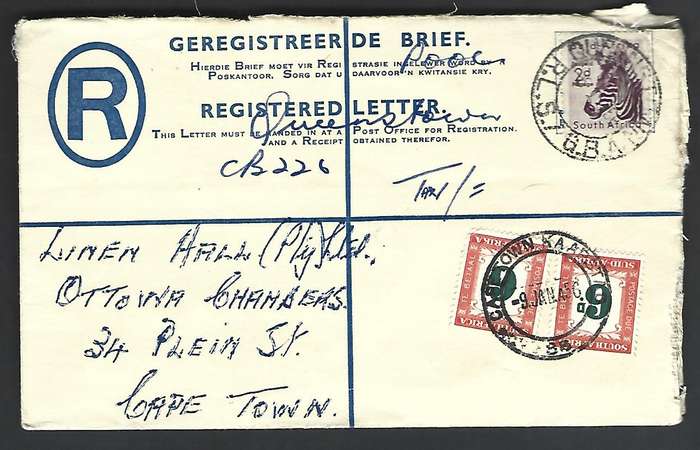 R
GEREGISTREERDE BRIEF.
HIERDIE BRIEF MOET VIR REGISTRASIE INGELEWER WORD BY 'N
POSKANTOOR. SORG DAT U DAARVOOR 'N KWITANSIE KRY.
REGISTERED LETTER.
Queenstown
THIS LETTER MUST BE HANDED IN AT A POST OFFICE FOR REGISTRATION.
AND A RECEIPT OBTAINED THEREFOR.
CB226
TAX 1/=
2d
South Africa
LINEN HALL (Pty) Ltd.
OTTOWA CHAMBERS.
34 PLEIN ST.
CAPE TOWN.
CAPE TOWN KAAPSTAD
9. JAN
SUID-AFRIKA
POSTAGE DUE
TE BETAAL
6D
SOUTH AFRICA
SUID-AFRIKA
POSTAGE DUE
TE BETAAL
6